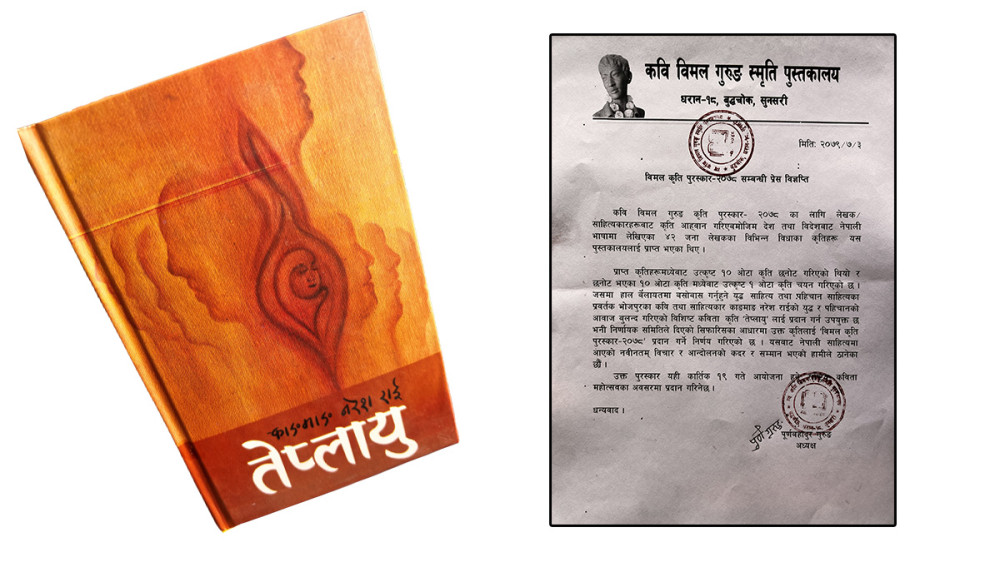 काङमाङ नरेश राई
तेप्लायु
कवि विमल गुरुङ स्मृति पुस्तकालय
धरान-१८, बुद्धचोक, सुनसरी
मिति: २०७९/७/३
विमल कृति पुरस्कार-२०७८ सम्बन्धी प्रेस विज्ञप्ति
कवि विमल गुरुङ कृति पुरस्कार- २०७८ का लागि लेखक/
साहित्यकारहरूबाट कृति आह्वान गरिएबमोजिम देश तथा विदेशबाट नेपाली
भाषामा लेखिएका ४२ जना लेखकका विभिन्न विधाका कृतिहरू यस
पुस्तकालयलाई प्राप्त भएका थिए ।
प्राप्त कृतिहरूमध्येबाट उत्कृष्ट १० ओटा कृति छनोट गरिएको थियो र
छनोट भएका १० ओटा कृति मध्येबाट उत्कृष्ट १ ओटा कृति चयन गरिएको छ ।
जसमा हाल बेलायतमा बसोबास गर्नुहुने युद्ध साहित्य तथा पहिचान साहित्यका
प्रवर्तक भोजपुरका कवि तथा साहित्यकार काङमाङ नरेश राईको युद्ध र पहिचानको
आवाज बुलन्द गरिएको विशिष्ट कविता कृति 'तेप्लायु' लाई प्रदान गर्न उपयुक्त छ
भनी निर्णायक समितिले दिएको सिफारिसका आधारमा उक्त कृतिलाई 'विमल कृति
पुरस्कार-२०७८' प्रदान गर्ने निर्णय गरिएको छ । यसबाट नेपाली साहित्यमा
आएको नवीनतम् विचार र आन्दोलनको कदर र सम्मान भएको हामीले ठानेका
छौं ।
उक्त पुरस्कार यही कार्तिक १९ गते आयोजना हुने कविता
महोत्सवका अवसरमा प्रदान गरिनेछ ।
धन्यवाद ।
पूर्ण गुरुङ
पूर्णबहादुर गुरुङ
अध्यक्ष